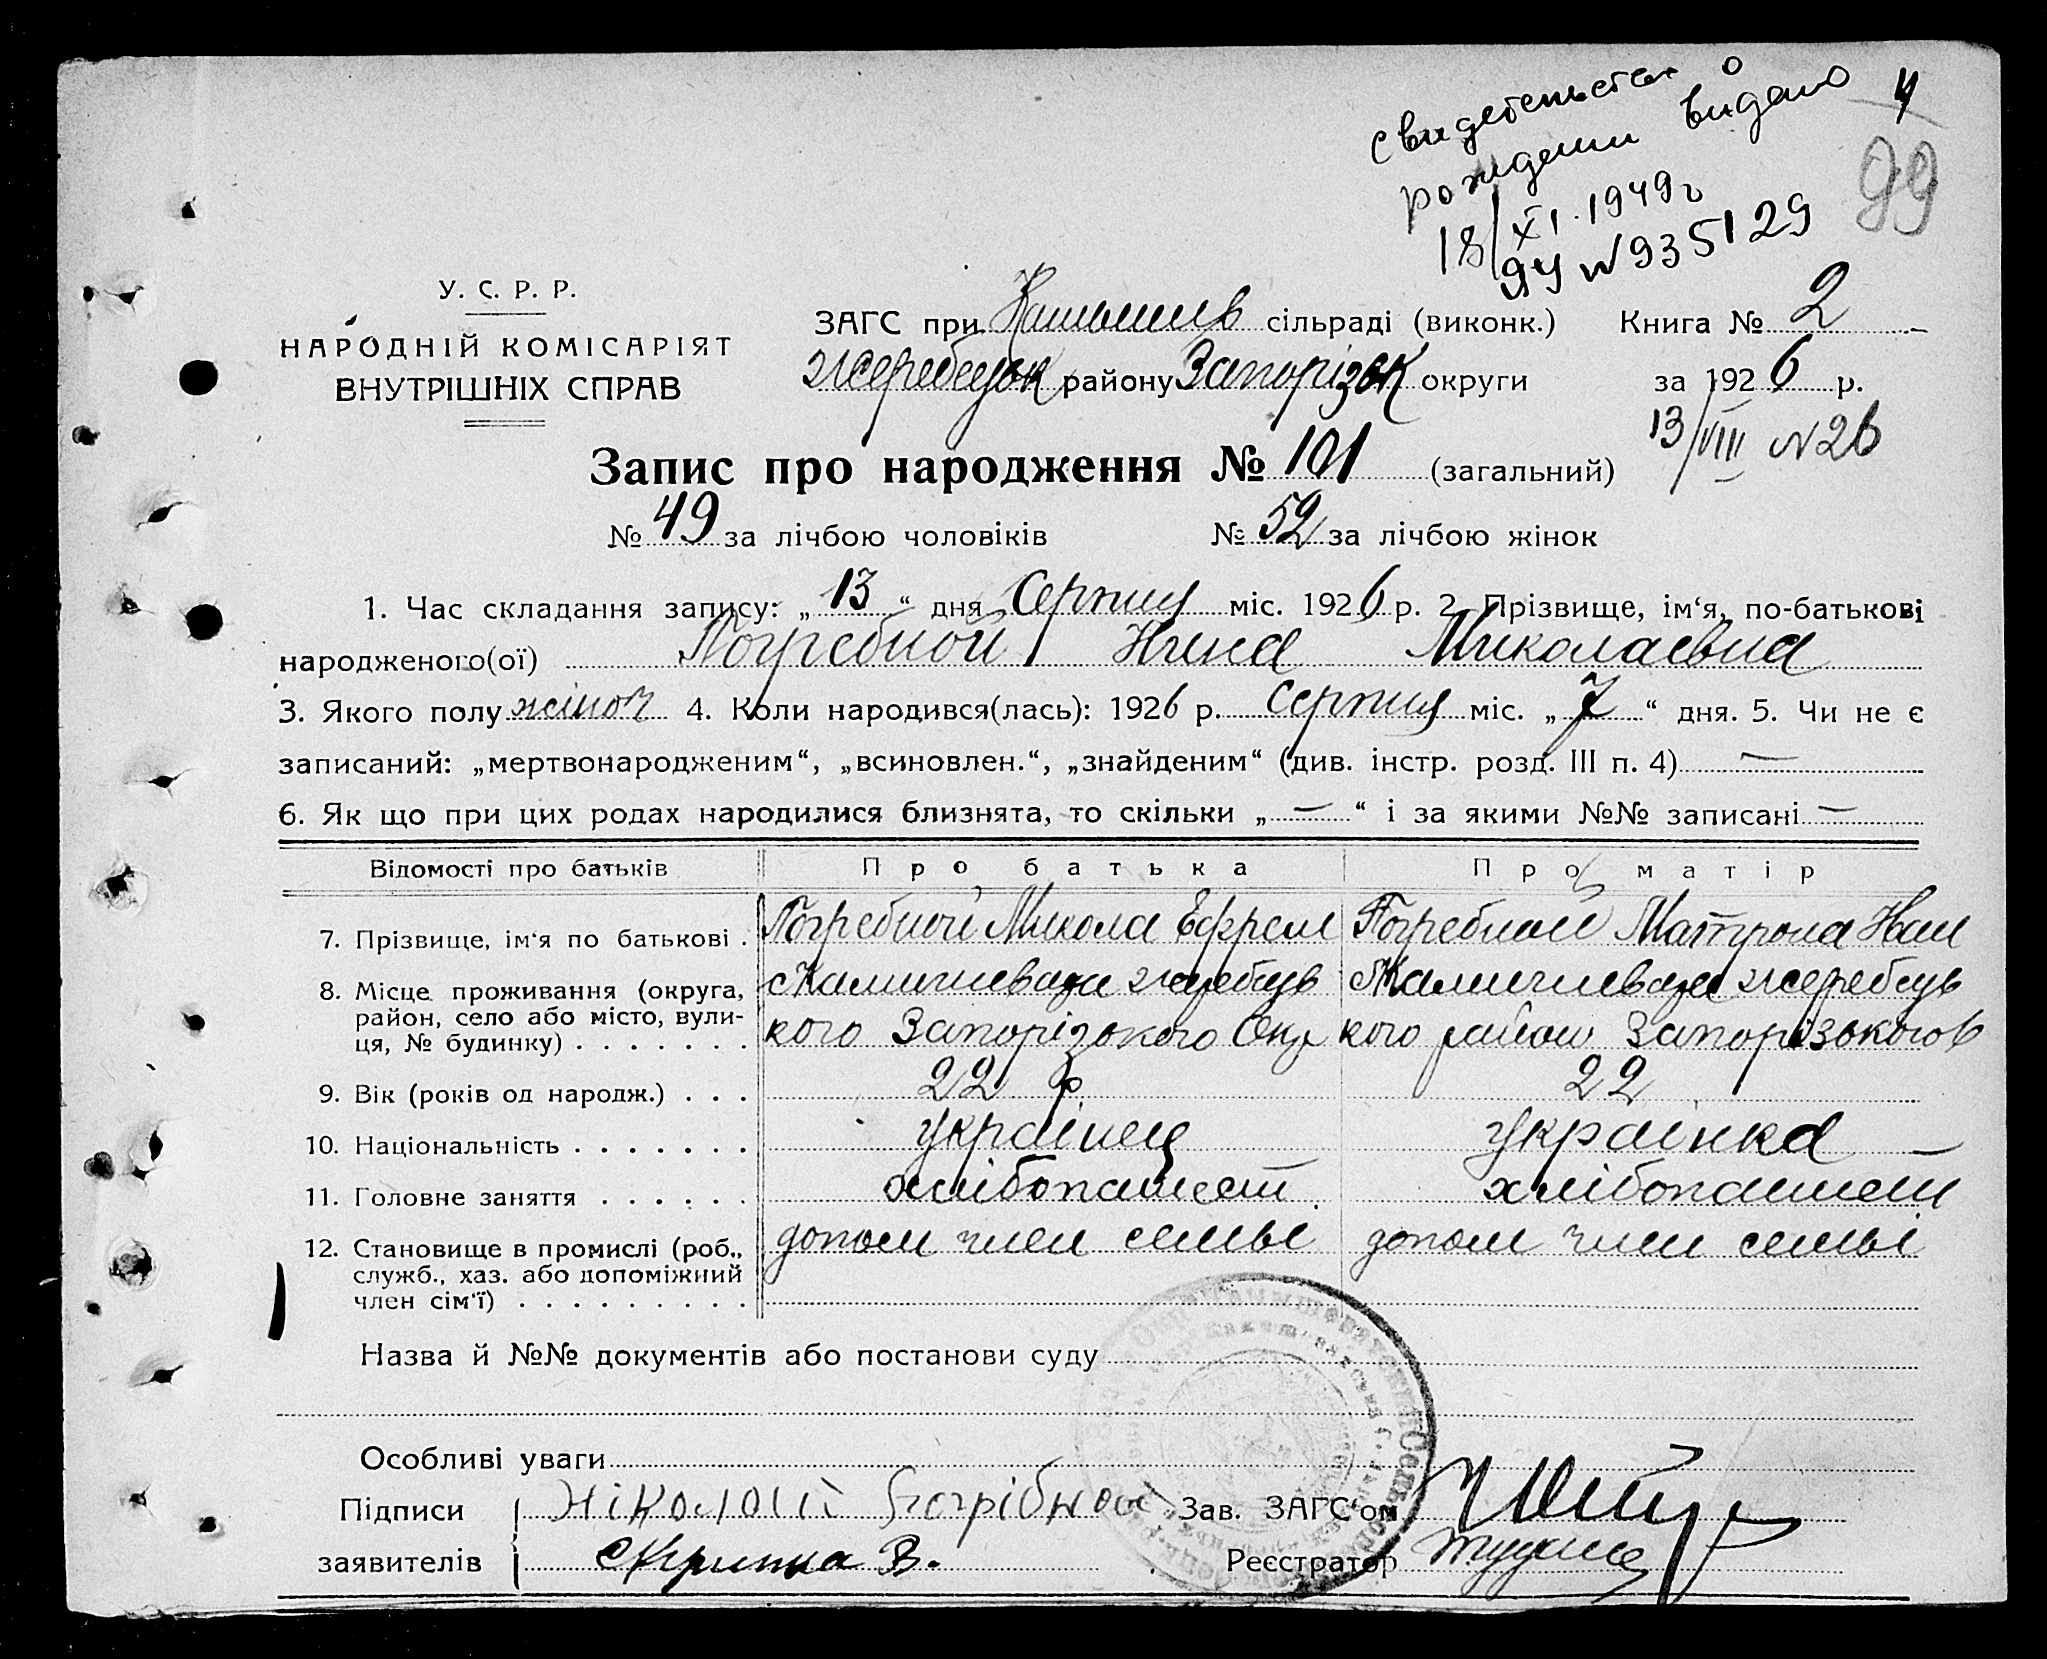 свидетельства о
рождении видано
18/XI.1949г
ЯЧ N 935129
4
99
У. С. Р. Р.
НАРОДНІЙ КОМІСАРІЯТ
ВНУТРІШНІХ СПРАВ
ЗАГС при сільраді (виконк.) Книга № 2
Жеребецьк району Запорізьк округи за 1926 р.
13/VIII N 26
Запис про народження № 101 (загальний)
№ 49 за лічбою чоловіків № 52 за лічбою жінок
1. Час складання запису: „13“ дня Серпня міс. 1926 р. 2. Прізвище, ім‘я, по-батькові
народженого(ої) Погребной Нина Миколаевна
3. Якого полу жіноч 4. Коли народився(лась): 1926 р. Серпня міс. „7“ дня. 5. Чи не є
записаний: „мертвонародженим“, „всиновлен.“, „знайденим“ (див. інстр. розд. III п. 4) —
6. Як що при цих родах народилися близнята, то скільки „—“ і за якими №№ записані —
Відомості про батьків Про батька Про матір
7. Прізвище, ім‘я по батькові . Погребной Микола Ефрем Погребной Матрона Иван
8. Місце проживання (округа,
район, село або місто, вули-
ця, № будинку) . . . . . . .
кого Запорізького Окр кого район Запорізького
9. Вік (років од народж.) . . . 22 р 22
10. Національність . . . . . . . українец українка
11. Головне заняття . . . . . . хлібопашест хлібопашест
12. Становище в промислі (роб.,
служб., хаз. або допоміжний
член сім‘ї) . . . . . . . . .
допом член семьі допом член семьі
Назва й №№ документів або постанови суду
Особливі уваги
Підписи Ніколай Погрібной Зав. ЗАГС‘ом
заявителів Скрипка В. Реєстратор